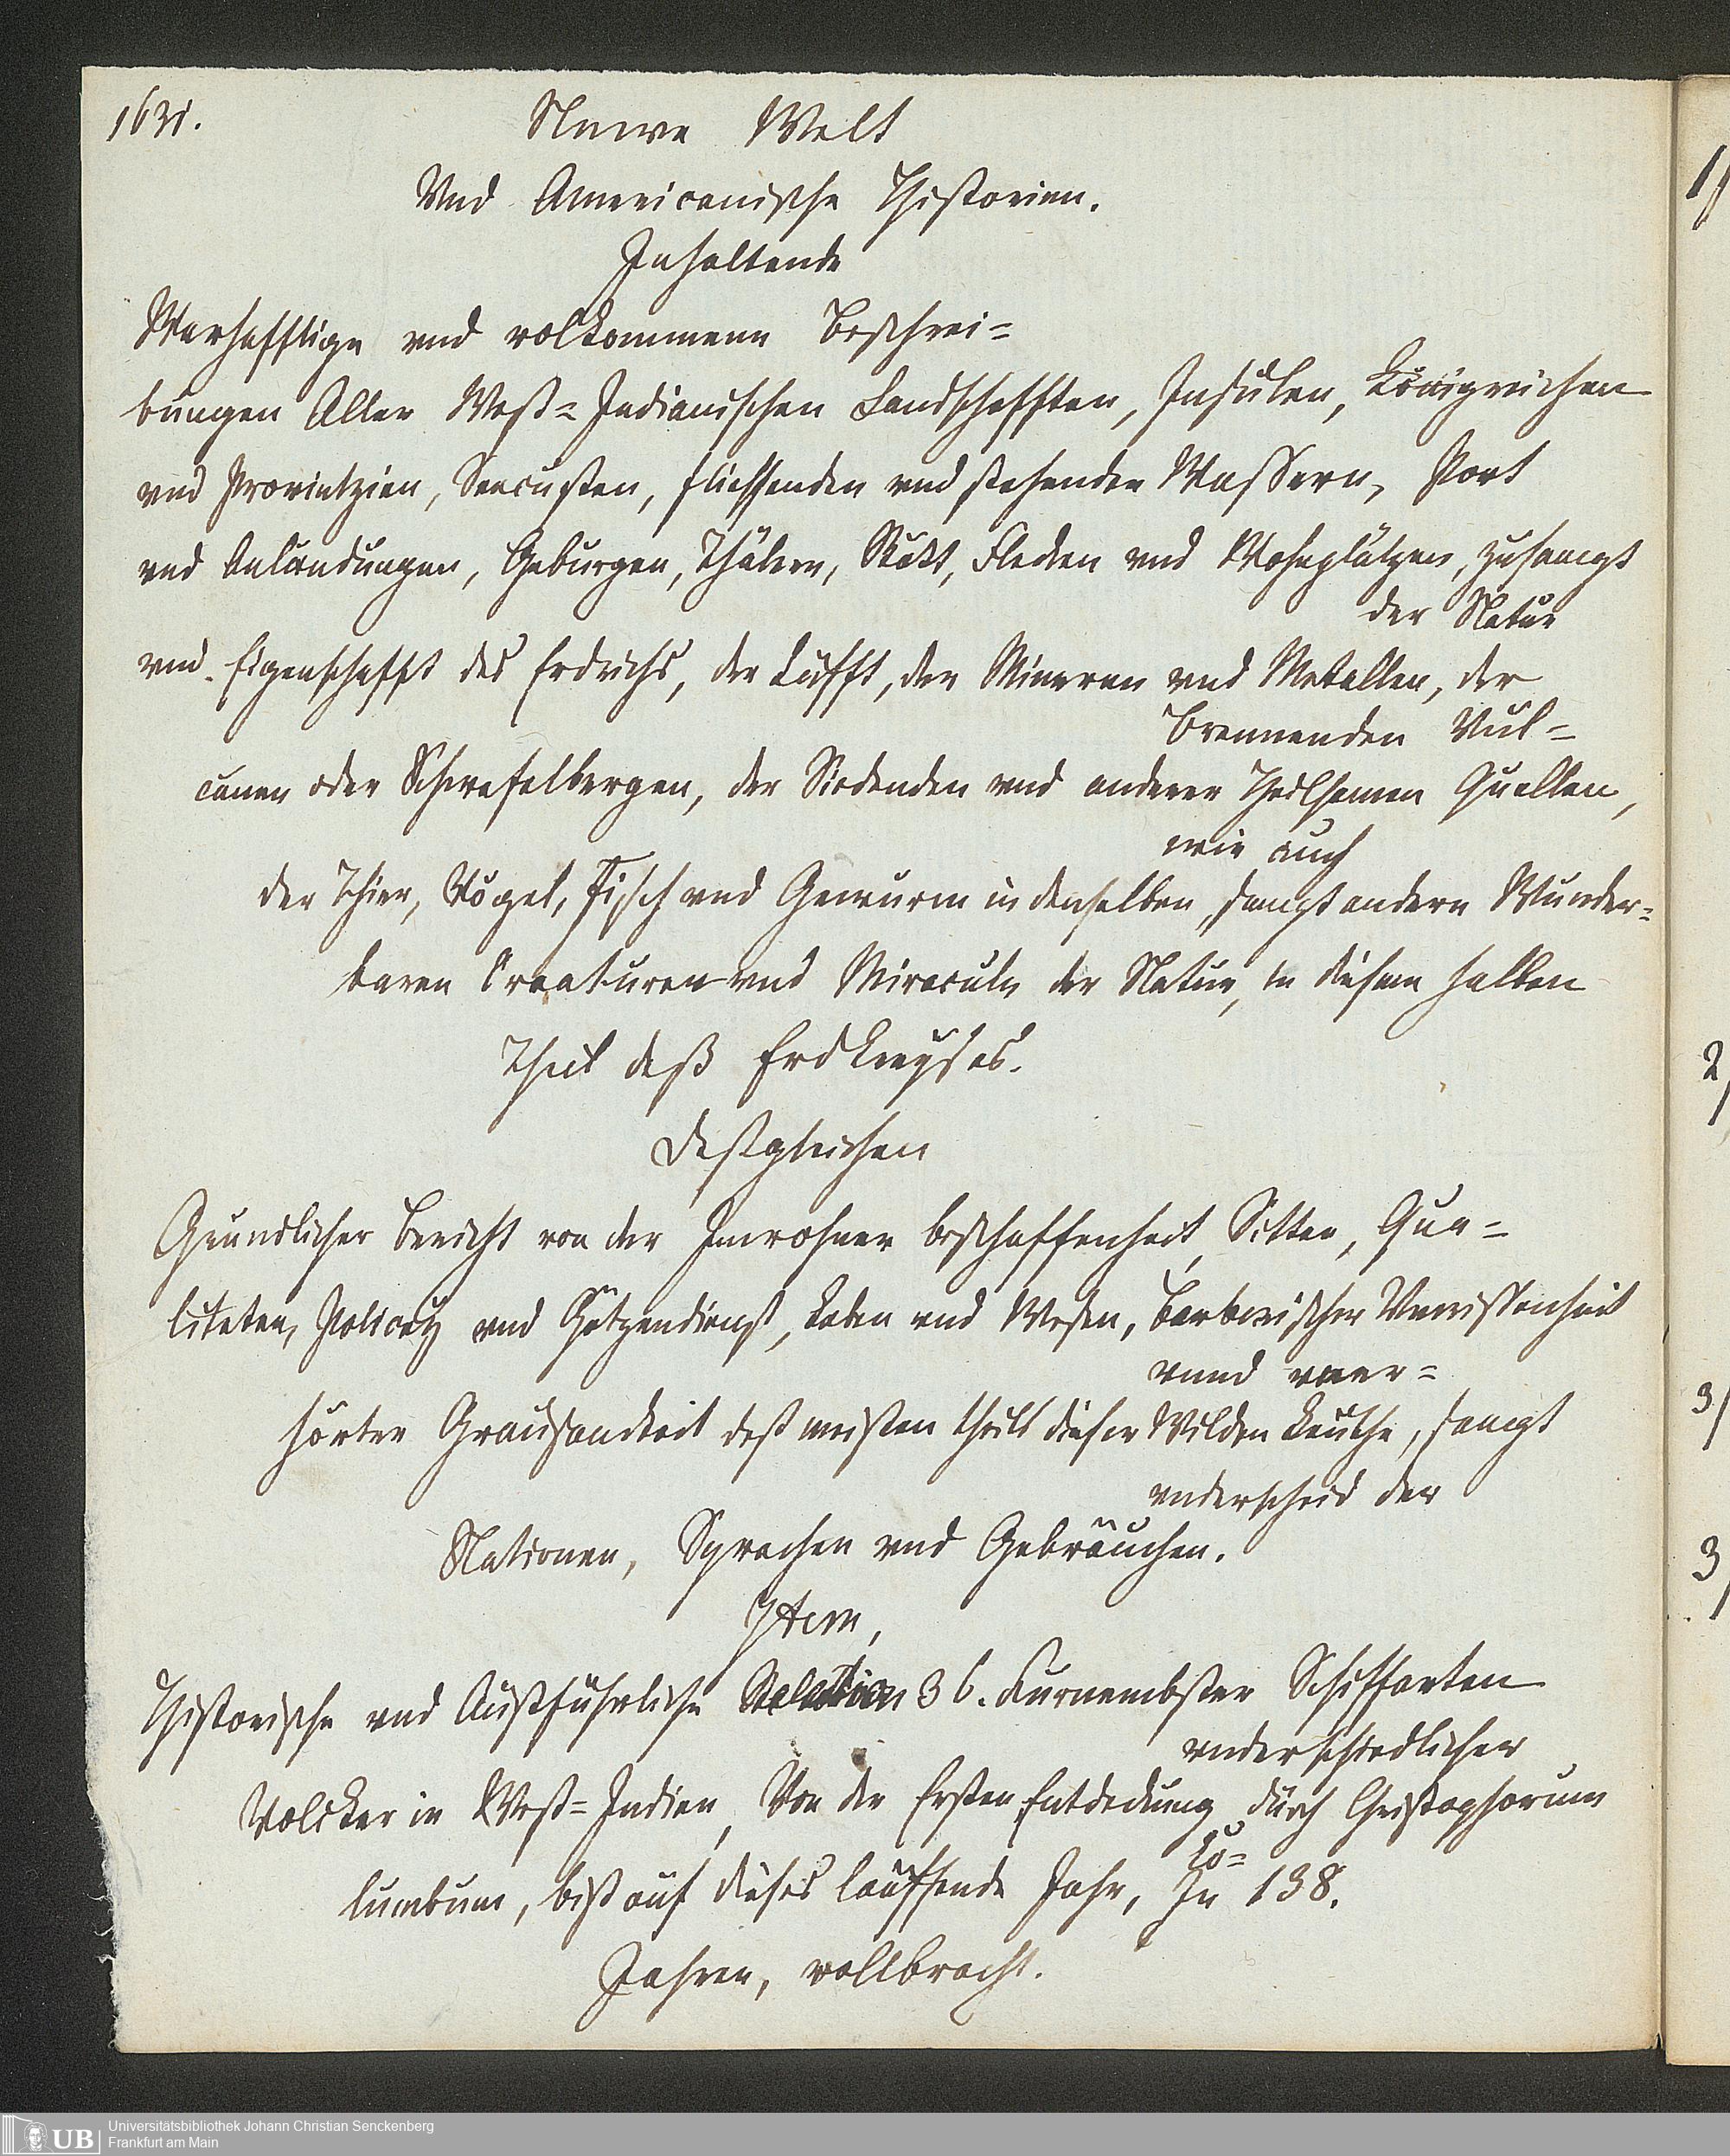 1631.
Newe Welt
Vnd Americanische Historien.
Inhaltende
Warhafftige vnd volkommene Beschrei=
bungen Aller West=Indianischen Landschafften, Insulen, Königreichen
vnd Provintzien, Seecusten, fliessenden vnd stehenden Wassern, Port
vnd Anländungen, Gebürgen, Thälern, Stätt, Flecken vnd Wohnplätzen, zusampt
der Natur
vnd Eigenschafft des Erdrichs, der Lüfft, der Mineren vnd Metallen, der
Brennenden Vul=
canen oder Schwefelbergen, der Siedenden vnd anderer Heilsamen Quellen,
wie auch
der Thier, Vögel, Fisch vnd Gewürm in denselben, sampt andern Wunder=
baren Creaturen vnd Miraculn der Natur, in diesem halben
Theil deß Erdkreyses.
Deßgleichen
Gründlicher Bericht von der Inwohner beschaffenheit, Sitten, Qua=
liteten, Policey vnd Götzendienst, Leben vnd Wesen, Barbarischer Vnwissenheit
vnnd vner=
hörter Grausamkeit deß meisten theils dieser Wilden Leuthe, sampt
vnderscheid der
Nationen, Sprachen vnd Gebräuchen.
Item,
Historische vnd Außführliche Relation 36. Furnembster Schiffarten
vnderschiedlicher
Völcker in West=Indien, Von der Ersten Entdeckung durch Christophorum
Co=
lumbum, biß auf dieses lauffende Jahr, In 138.
Jahren, vollbracht.
1)
2)
3)
3)
UB
Universitätsbibliothek Johann Christian Senckenberg
Frankfurt am Main